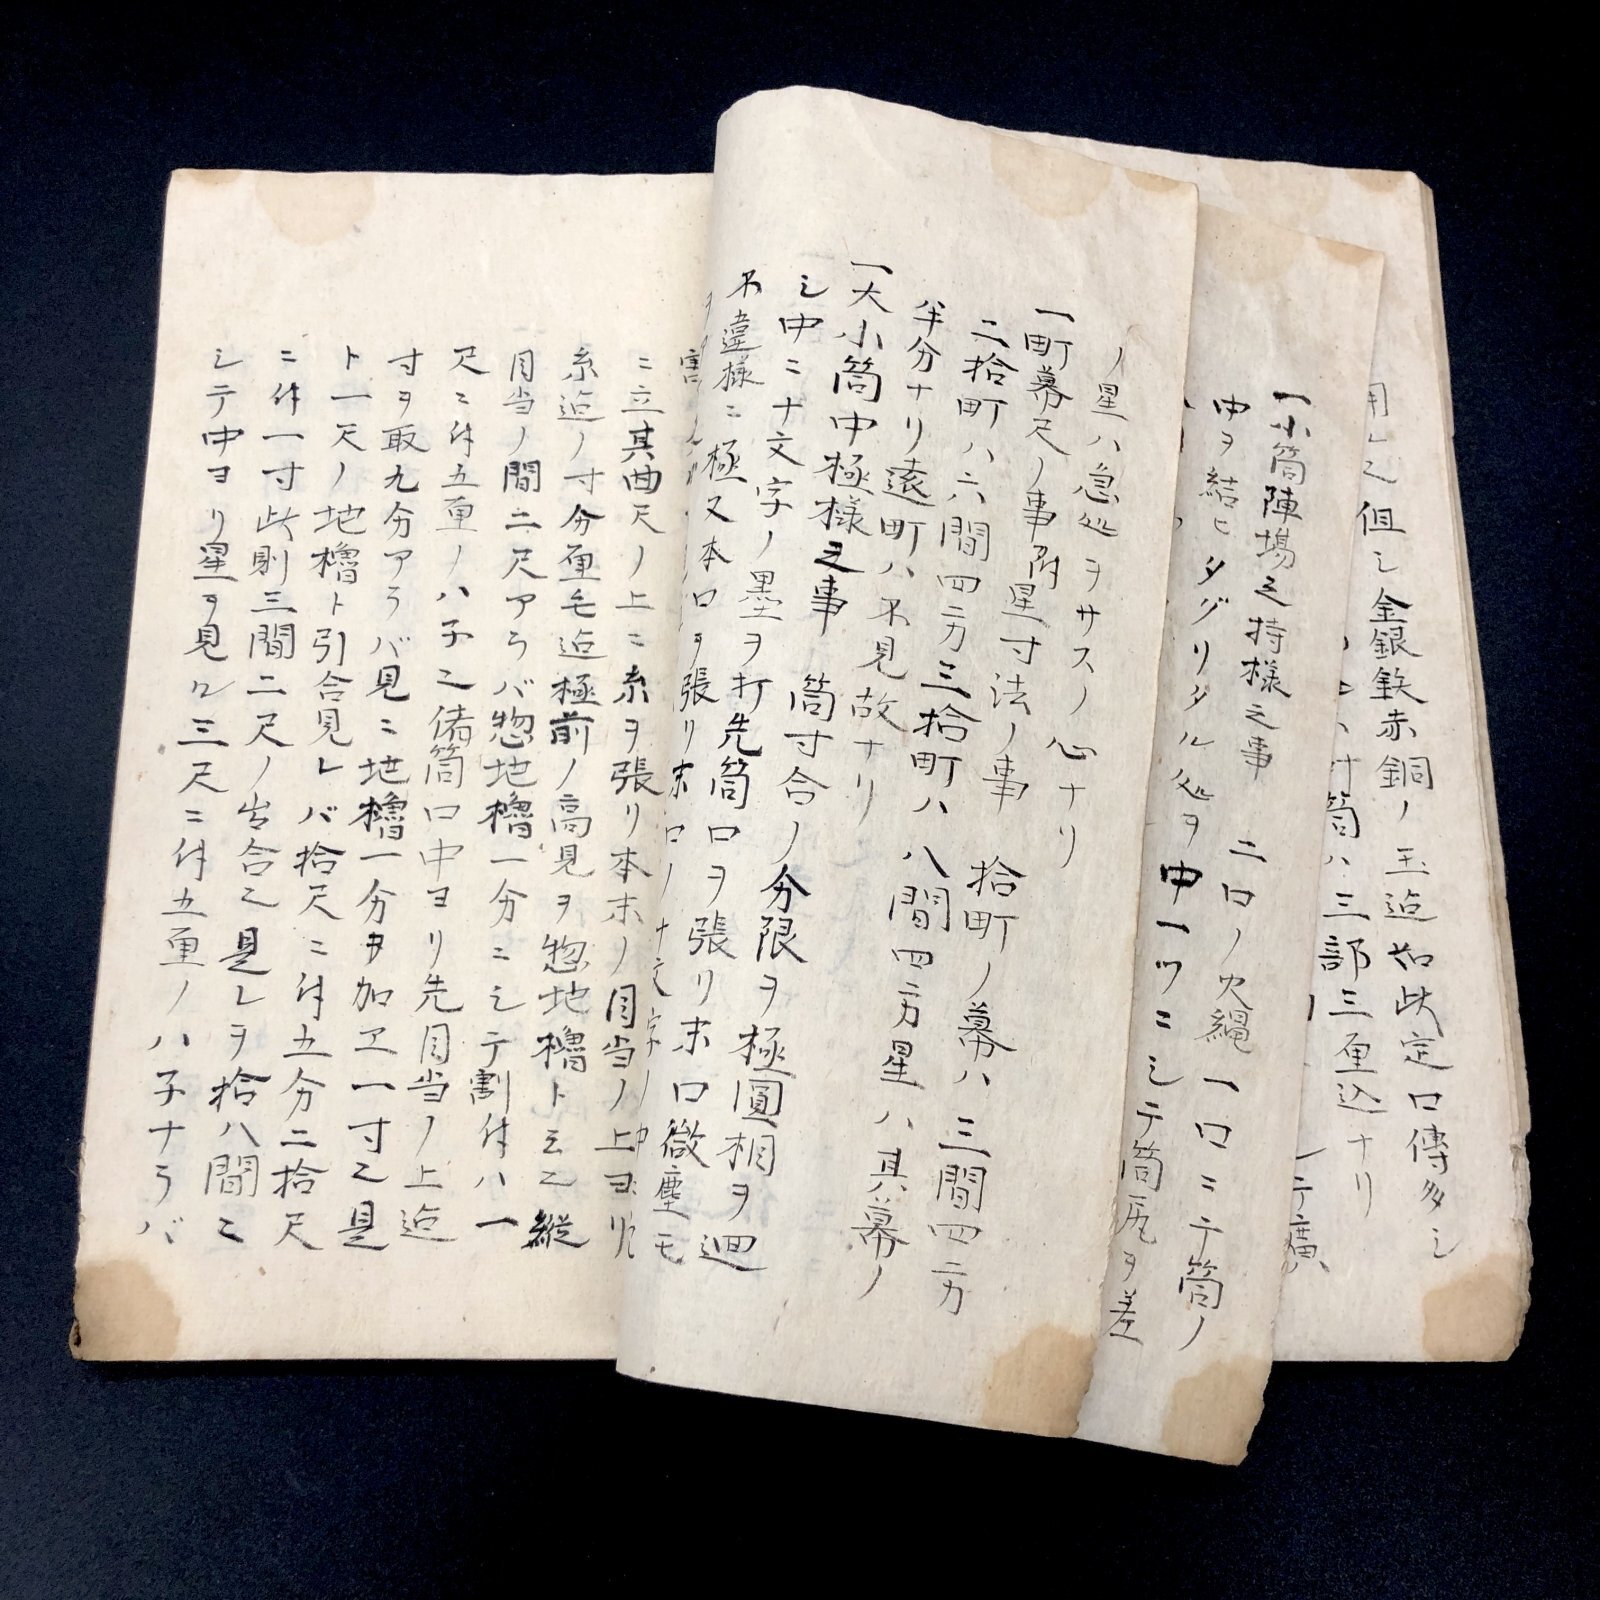 用レ之但シ金銀鉄赤銅ノ玉迠如此定口傳多シ
筒ハ三部三厘込ナリ
シテ廣
一小筒陣場之持様之事　二口ノ火縄一口ニテ筒ノ
中ヲ結ヒタグリタル処ヲ中一ツニシテ筒尻ヲ差
ノ星ハ急処ヲサスノ心ナリ
一町幕尺ノ事附星寸法ノ事　拾町ノ幕ハ三間四方
二拾町ハ六間四方三拾町ハ八間四方星ハ其幕ノ
半分ナリ遠町ハ不見故ナリ
一大小筒中極様之事　筒寸合ノ分限ヲ極圓相ヲ廻
シ中ニ十文字ノ墨ヲ打先筒口ヲ張リ末口微塵モ
不違様ニ極又本口ヲ張リ末口ノ十文字ノ中
ニ立其曲尺ノ上ニ糸ヲ張リ本末ノ目当ノ上ヨリ
糸迠ノ寸分厘毛迠極前ノ高見ヲ惣地櫓ト云乄縦
目当ノ間二尺アラバ惣地櫓一分ニシテ割付ハ一
尺ニ付五厘ノハ子乄偖筒口中ヨリ先目当ノ上迠
寸ヲ取九分アラバ見ニ地櫓一分ヲ加ヱ一寸乄是
ト一尺ノ地櫓ト引合見レバ拾尺ニ付五分二拾尺
ニ付一寸此則三間二尺ノ出合乄見レヲ拾八間ニ
シテ中ヨリ星ヲ見ル三尺ニ付五厘ノハ子ナラバ